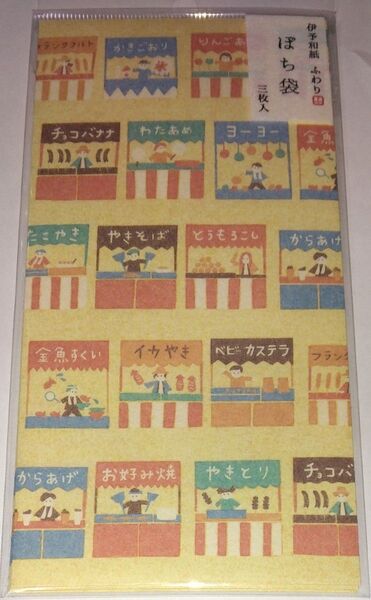 伊予和紙 ふわり
ぽち袋
三枚入
フランクフルト
かきごおり
りんごあ
チョコバナナ
わたあめ
ヨーヨー
金魚
たこやき
やきそば
とうもろこし
からあげ
金魚すくい
イカやき
ベビーカステラ
フランク
からあげ
お好み焼
やきとり
チョコバ